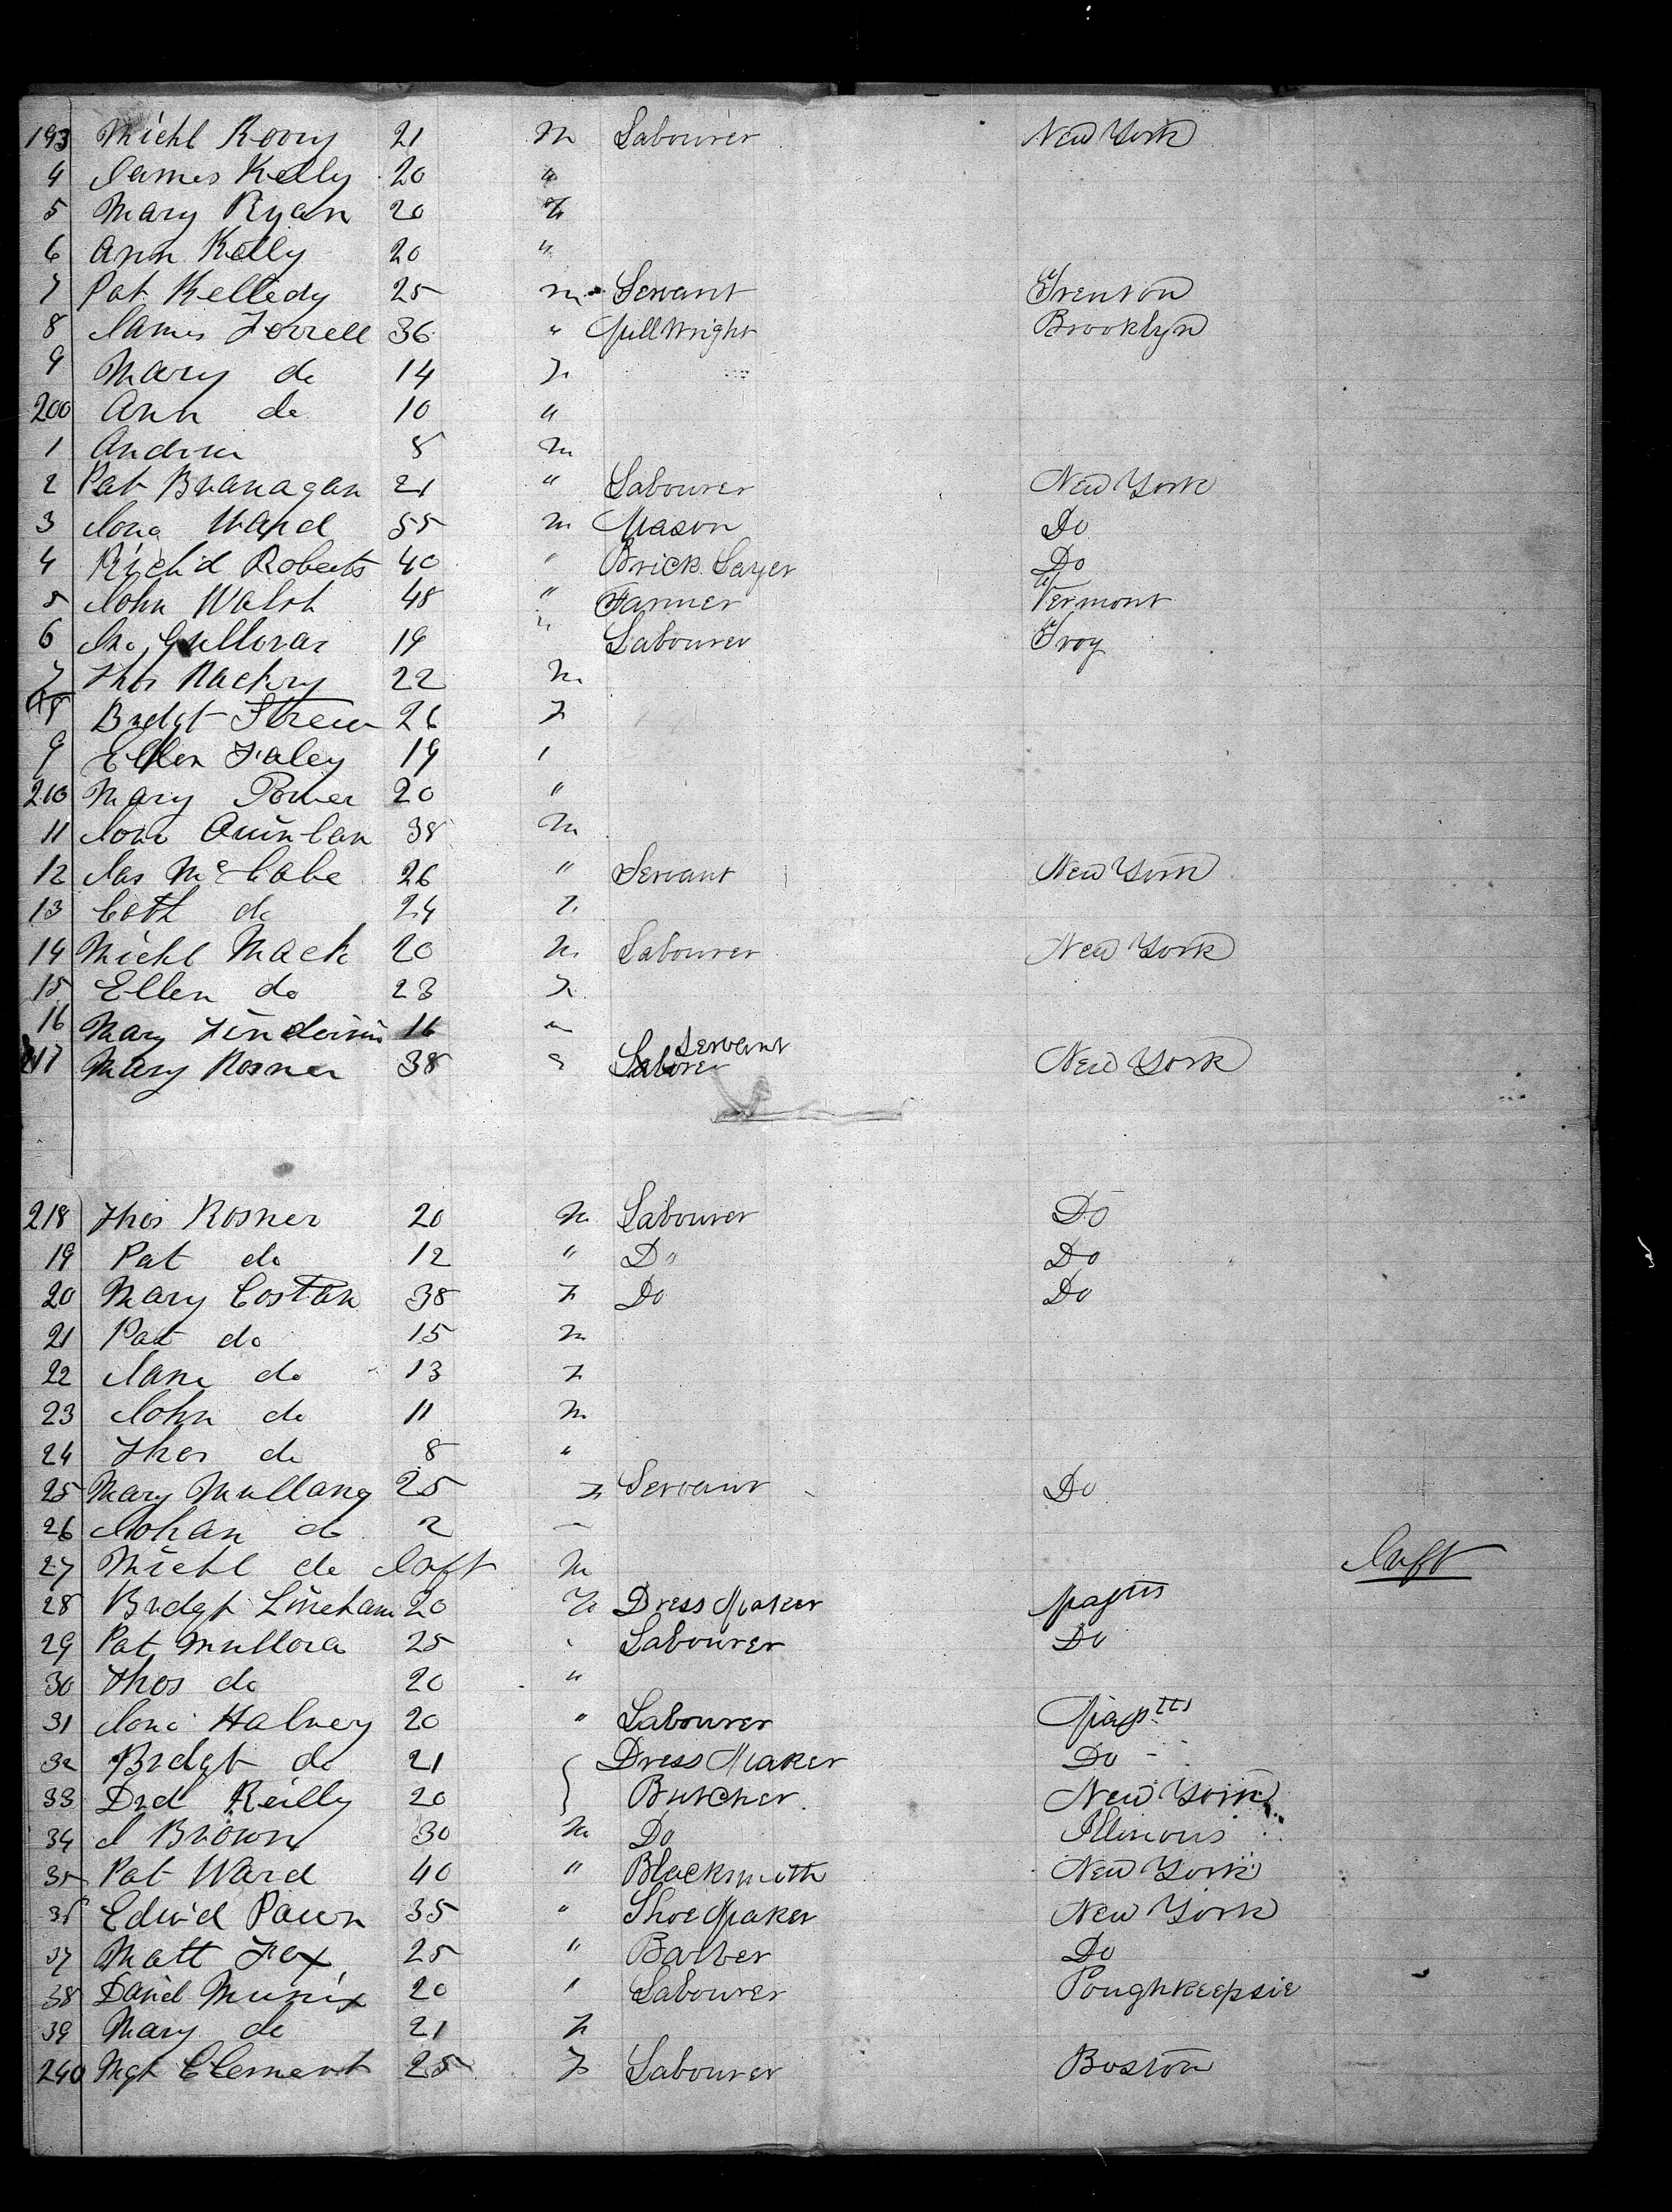 193 Michl Roory 21 M Labourer New York
4 James Kelly 20 "
5 Mary Ryan 20 F
6 Ann Kelly 20 "
7 Pat Kelledy 25 M Servant Trenton
8 James Forrell 36 " Mill Wright Brooklyn
9 Mary do 14 F
200 Ann do 10 "
1 Andrew 8 M
2 Pat Branagan 21 " Labourer New York
3 Ward 55 M Mason Do
4 Rich'd Roberts 40 " Brick Layer Do
5 John Walsh 48 " Farmer Vermont
6 Jno 19 " Labourer Troy
7 Thos Mackry 22 M
8 Bredgt 26 F
9 Ellen Faley 19 "
210 Mary Power 20 "
11 Quinlan 38 M
12 Jas McCabe 26 " Servant New York
13 Cath do 24 F
14 Michl Mack 20 M Labourer New York
15 Ellen do 23 F
16 Mary 16 "
Servant
217 Mary Rosner 38 " New York
218 Thos Rosner 20 M Labourer Do
19 Pat do 12 " Do Do
20 Mary Costan 38 F Do Do
21 Pat do 15 M
22 Jane do 13 F
23 John do 11 M
24 Thos do 8 "
25 Mary Mullany 25 F Servant Do
26 Johan do 2 "
27 Michl do Inft M Inft
28 Bredgt Lineham 20 F Dress Maker
29 Pat Mullora 25 " Labourer Do
30 Thos do 20 "
31 Halvey 20 " Labourer
32 Bredgt do 21 Dress Maker Do
33 Reilly 20 Butcher New York
34 J Brown 30 M Do Illinous
35 Pat Ward 40 " Blacksmith New York
36 Edw'd 35 " Shoe Maker New York
37 Matt Fox 25 " Barber Do
38 David Munix 20 " Labourer Poughkeepsie
39 Mary do 21 F
240 Mgt Clement 25 F Labourer Boston